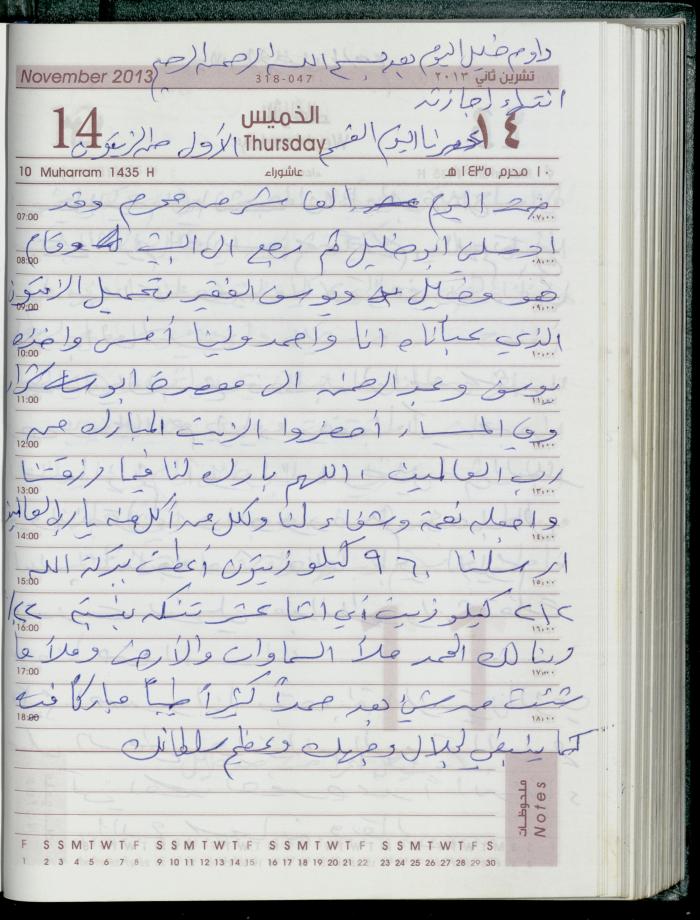 داوم خليل اليوم بعد بسم الله الرحمن الرحيم
November 2013 318-047 تشرين ثاني ٢٠١٣
انتهاء إجازته
14 الخميس Thursday ١٤
أحضرنا اليوم القسم الأول من الزيتون
10 Muharram 1435 H عاشوراء ١٠ محرم ١٤٣٥ هـ
صمت اليوم العاشر من محرم وقد
07:00 ٠٧,٠٠
اوصلني ابو خليل ثم رجع الى البيت وقام
08:00 ٠٨,٠٠
هو وخليل ويوسف الفقير بتحميل الزيتون
09:00 ٠٩,٠٠
الذي عبأناه انا واحمد ولينا أمس واخذه
10:00 ١٠,٠٠
يوسف وعبد الرحمن الى معصرة ابو
11:00 ١١,٠٠
وفي المساء أحضروا الزيت المبارك من
12:00 ١٢,٠٠
رب العالمين اللهم بارك لنا فيما رزقتنا
13:00 ١٣,٠٠
واجعله نعمة وشفاء لنا ولكل من أكل منه يا رب العالمين
14:00 ١٤,٠٠
ارسلنا ٩٦٠ كيلو زيتون أعطت ببركة الله
15:00 ١٥,٠٠
٢١٢ كيلو زيت أي اثنا عشر تنكه بنسبة ٢٢٪
16:00 ١٦,٠٠
ربنا لك الحمد ملأ السماوات والأرض وملأ ما
17:00 ١٧,٠٠
شئت من شيء بعد حمداً كثيراً طيباً مباركاً فيه
18:00 ١٨,٠٠
كما ينبغي لجلال وجهك وعظيم سلطانك
ملحوظات Notes
F S S M T W T F S S M T W T F S S M T W T F S S M T W T F S
1 2 3 4 5 6 7 8 9 10 11 12 13 14 15 16 17 18 19 20 21 22 23 24 25 26 27 28 29 30